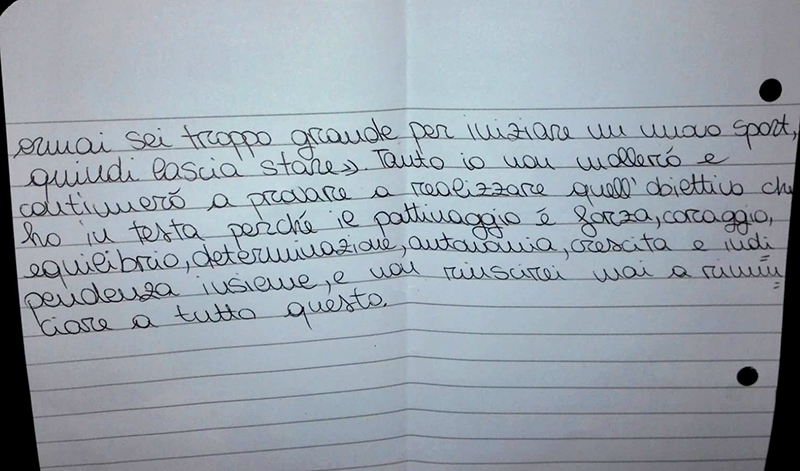 ormai sei troppo grande per iniziare un nuovo sport,
quindi lascia stare». Tanto io non mollerò e
continuerò a provare a realizzare quell'obiettivo che
ho in testa perché il pattinaggio è forza, coraggio,
equilibrio, determinazione, autonomia, crescita e indi
pendenza insieme, e non riuscirei mai a rinun
ciare a tutto questo.